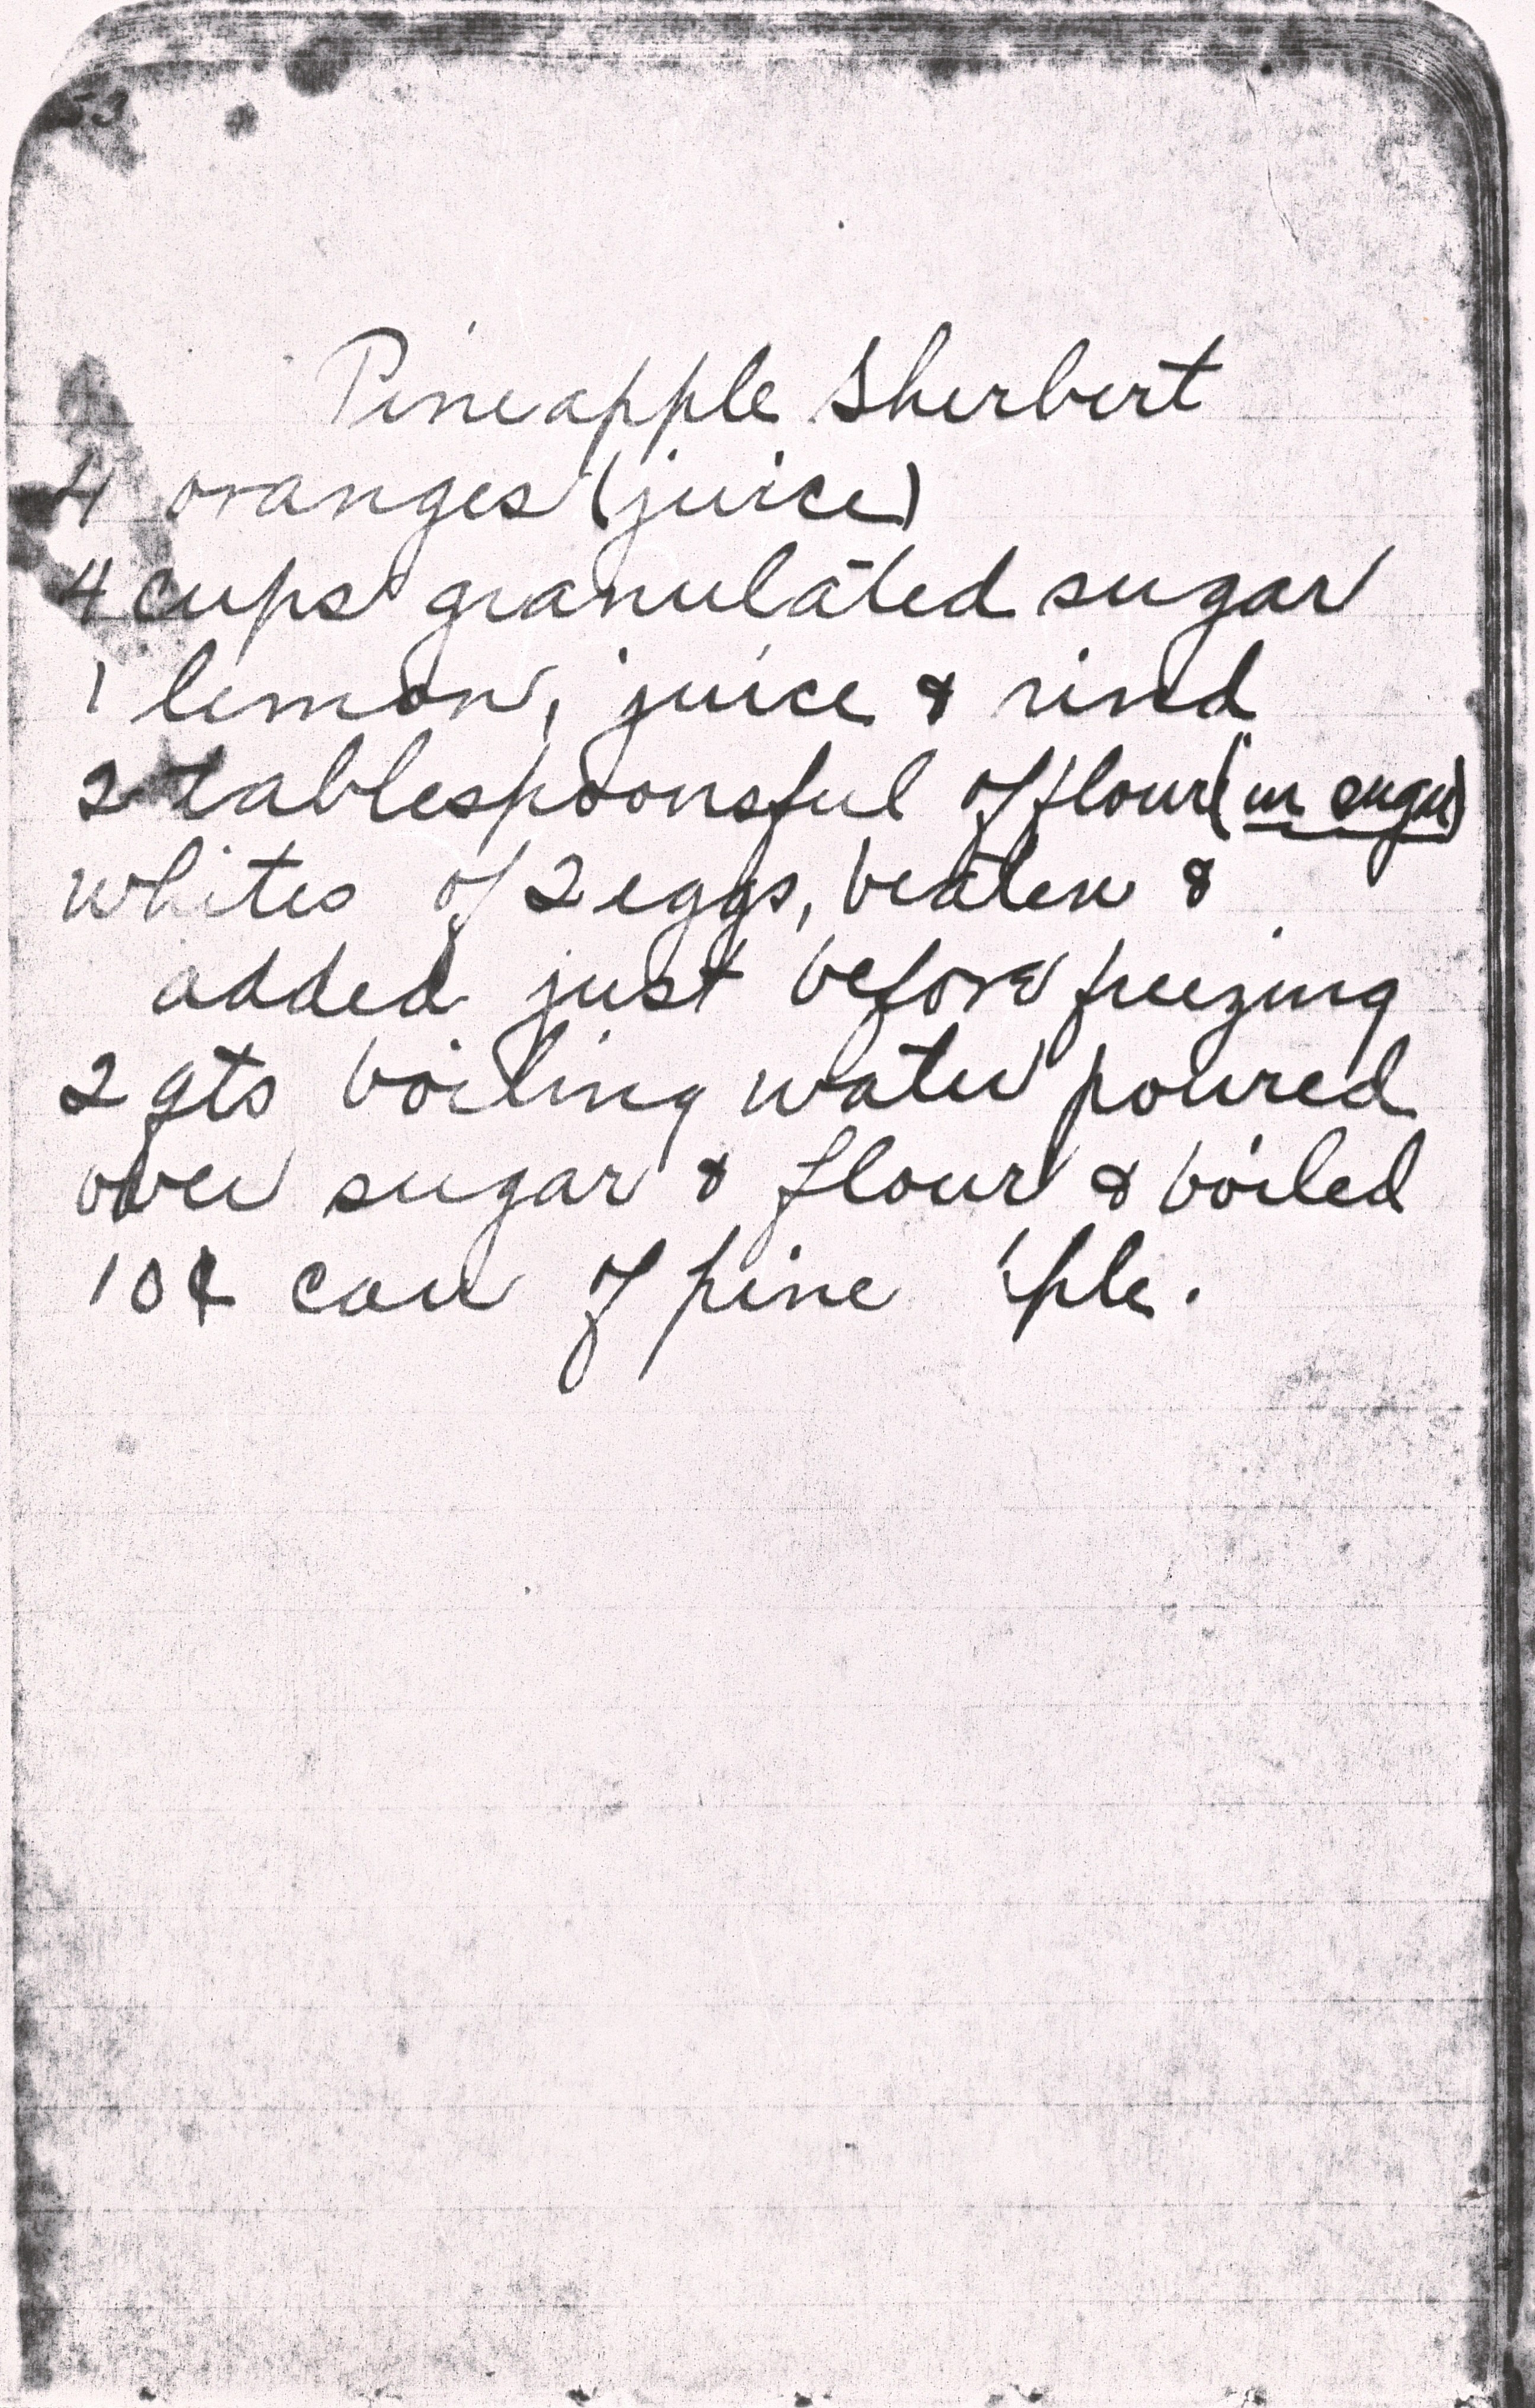 53
Pineapple Sherbert
4 oranges (juice)
4 cups granulated sugar
1 lemon, juice & rind
2 tablespoonsful of flour (in sugar)
whites of 2 eggs, beaten &
added just before freezing
2 qts boiling water poured
over sugar & flour & boiled
10¢ can of pine 'ple.